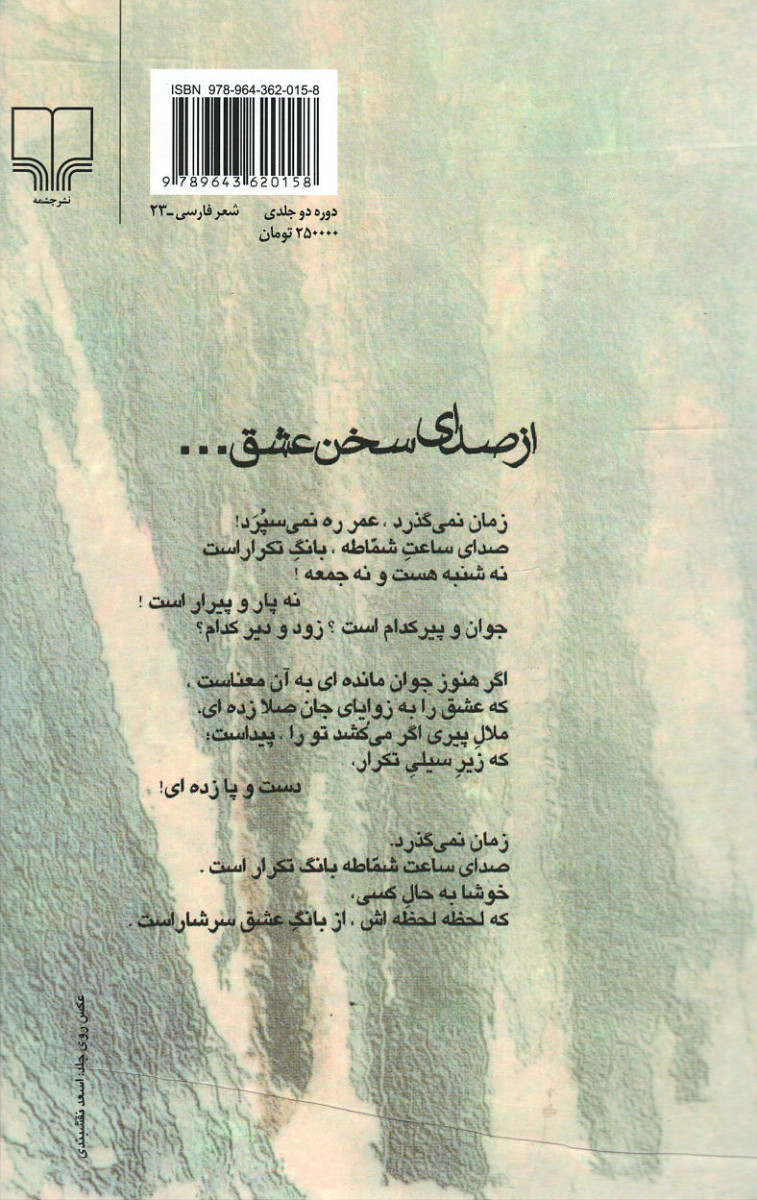 ISBN 978-964-362-015-8
9 789643 620158
نشرچشمه
دوره دو جلدی    شعر فارسی ـ ۲۳
۲۵۰۰۰۰ تومان
از صدای سخن عشق ...
زمان نمی‌گذرد ، عمر ره نمی‌سپُرَد!
صدای ساعتِ شمّاطه ، بانگِ تکرار است
نه شنبه هست و نه جمعه !
نه پار و پیرار است !
جوان و پیر کدام است ؟ زود و دیر کدام؟
اگر هنوز جوان مانده ای به آن معناست ،
که عشق را به زوایای جان صلا زده ای.
ملالِ پیری اگر می‌کُشد تو را ، پیداست؛
که زیرِ سیلیِ تکرار،
دست و پا زده ای!
زمان نمی‌گذرد.
صدای ساعت شمّاطه بانگ تکرار است .
خوشا به حالِ کسی،
که لحظه لحظه اش ، از بانگِ عشق سرشار است .
عکس روی جلد: اسعد نقشبندی